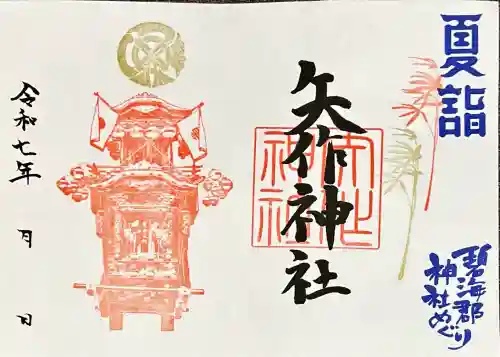 夏詣
矢作神社
矢作
神社
碧海郡
神社めぐり
令和七年 月 日